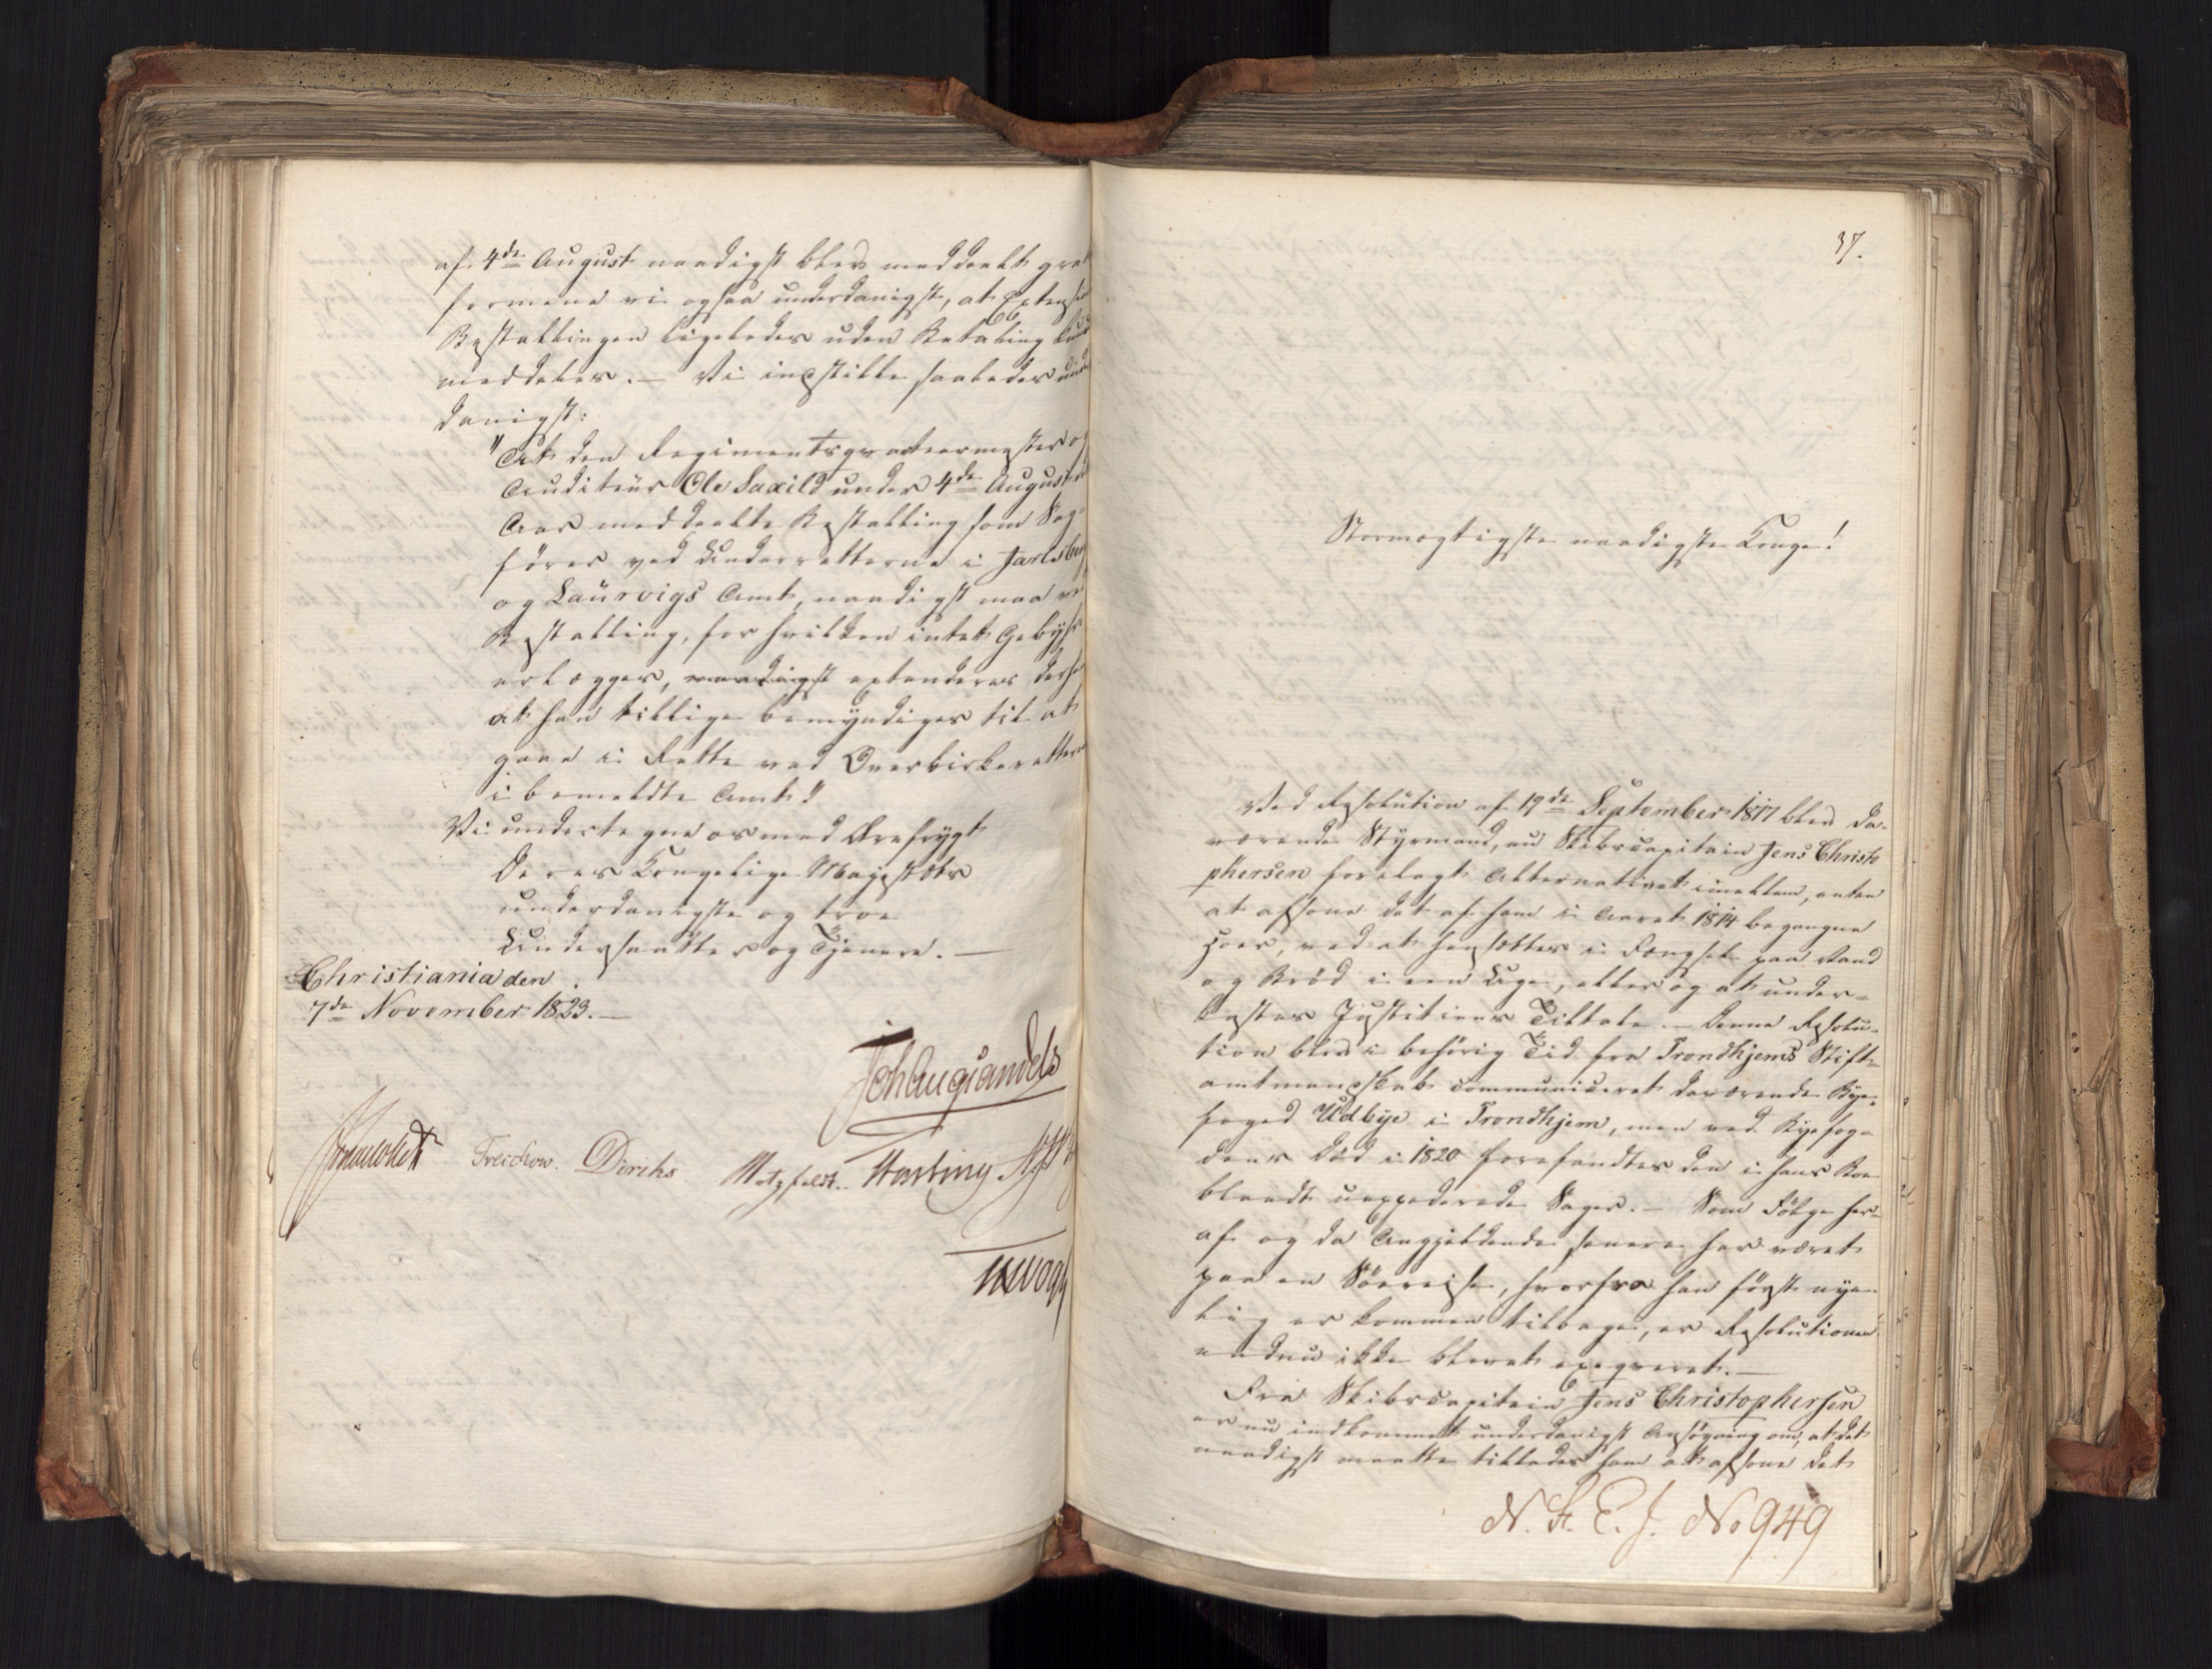 af 4de August naadigst blev meddeelt gra
formene vi ogsaa underdanigst, at Extensi
Bestallingen ligeledes uden Betaling kun
meddeles. — Vi indstille saaledes un
danigst:
"At den Regimentsqvarteermester og
Auditeur Ole Saxild under 4de August
Aar meddeelte Bestalling som Sag-
förer ved Underretterne i Jarlsberg
og Laurvigs Amt, naadigst maa ved
Bestalling, for hvilken intet Gebyhr
erlægges, naadigst extenderes derhen
at han tillige bemyndiges til at
gaae i Rette ved Overbirkeretterne
i bemeldte Amt."
Vi undertegne os med Ærefrygt
Deres Kongelige Majestæts
underdanigste og troe
Undersaatter og Tjenere. —
Christiania den
7de November 1823. —
Joh Aug Sandels
Treschow. Diriks Motzfeldt. Hasting
37.
Stormægtigste naadigste Konge!
Ved Resolution af 19de September 1817 blev da-
værende Styrmand, nu Skibscapitain Jens Christo
phersen forelagt Alternativet imellem, enten
at afsone det af ham i Aaret 1814 begangne
Hoer, ved at hensættes i Fængsel paa Vand
og Bröd i een Uge, eller og at under-
kastes Justitiens Tiltale. — Denne Resolu-
tion blev i behörig Tid fra Trondhjems Stift-
amtmandskab communiceret daværende Bye-
foged Udbye i Trondhjem, men ved Byefog-
dens Död i 1820 forefandtes den i hans Boe
blandt uexpederede Sager. — Som Fölge her-
af og da Angjeldende senere har været
paa en Söereise, hvorfra han först nye-
lig er kommen tilbage, er Resolutionen
endnu ikke blevet exeqveret. —
Fra Skibscapitain Jens Christophersen
er nu indkommet underdanigst Ansögning om, at det
naadigst maatte tillades ham at afsone det
N. St. E. J. No 949